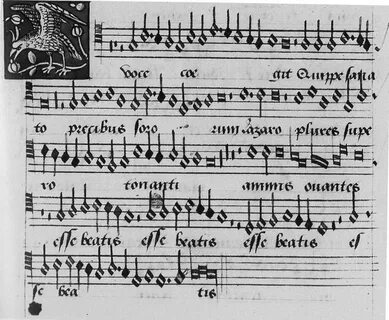 voce coe git Quippe satia
to precibus soro rum Lazaro plures supe
ro tonanti ammis ouantes
esse beatis esse beatis esse beatis es
se bea tis